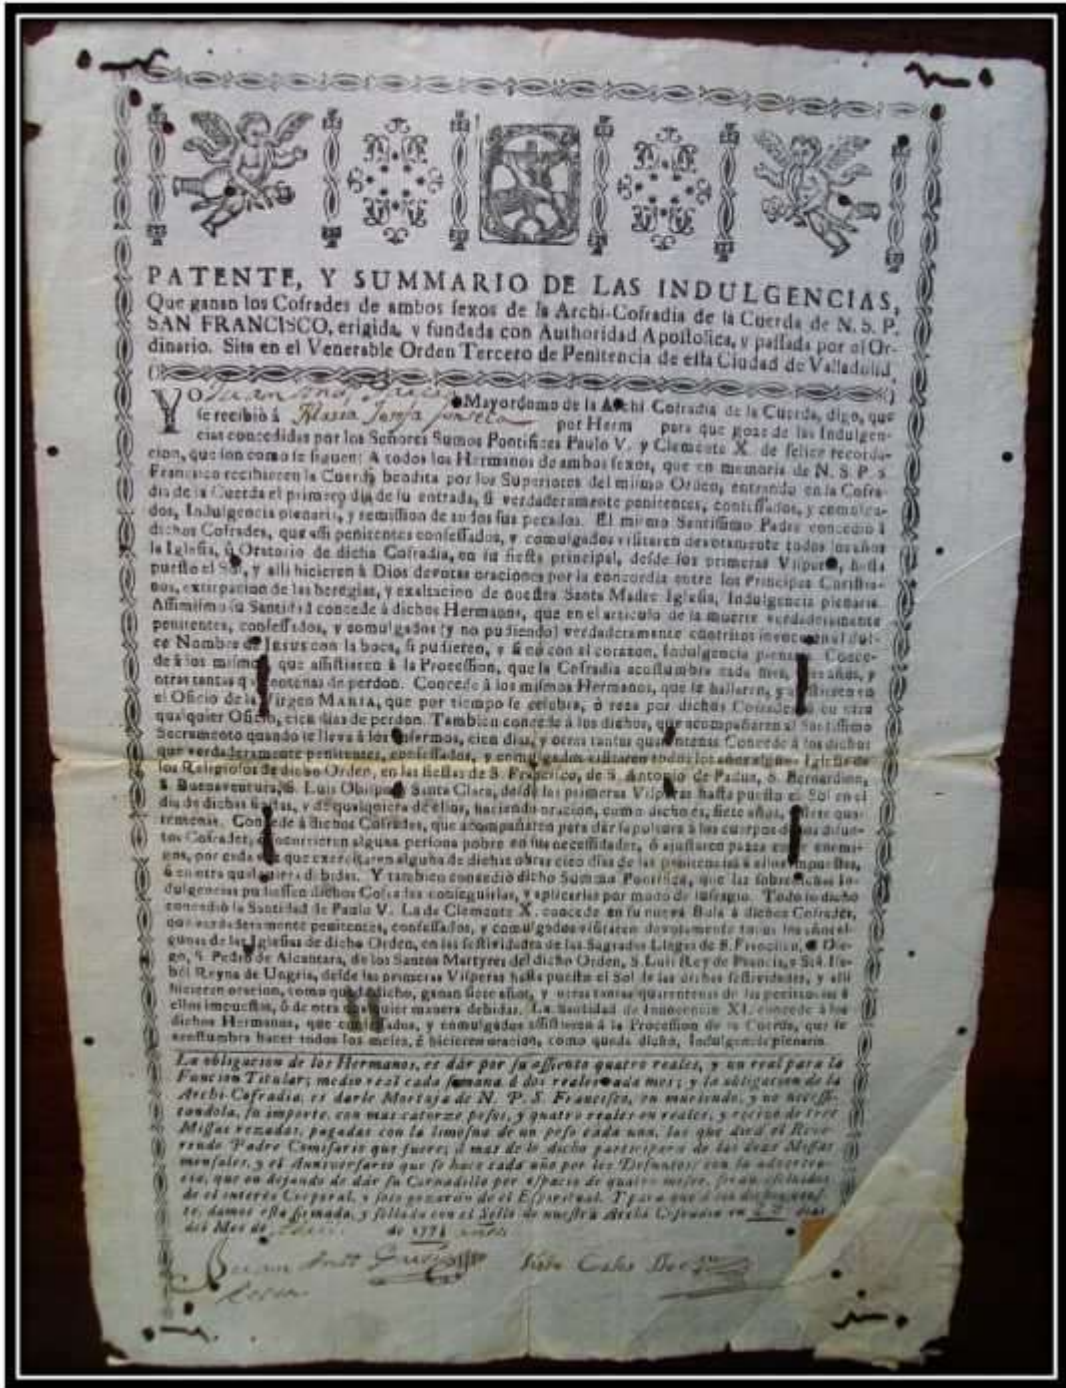 PATENTE, Y SUMMARIO DE LAS INDULGENCIAS,
Que ganan los Cofrades de ambos ſexos de la Archi-Cofradia de la Cuerda de N. S. P.
SAN FRANCISCO, erigida, y fundada con Authoridad Apoſtolica, y paſſada por el Or-
dinario. Sita en el Venerable Orden Tercero de Penitencia de eſta Ciudad de Valladolid.
YO Juan Mayordomo de la Archi Cofradia de la Cuerda, digo, que
ſe recibiò á Maria Josefa por Herm para que goze de las Indulgen-
cias concedidas por los Señores Sumos Pontifices Paulo V. y Clemente X. de felice recorda-
cion, que ſon como ſe ſiguen: A todos los Hermanos de ambos ſexos, que en memoria de N. S. P. S.
Franciſco recibieren la Cuerda bendita por los Superiores del miſmo Orden, entrando en la Cofra-
dia de la Cuerda el primero dia de ſu entrada, ſi verdaderamente penitentes, confeſſados, y comulga-
dos, Indulgencia plenaria, y remiſſion de todos ſus pecados. El miſmo Santiſſimo Padre concediò á
dichos Cofrades, que aſſi penitentes confeſſados, y comulgados viſitaren devotamente todos los años
la Igleſia, ú Oratorio de dicha Cofradia, en ſu fieſta principal, deſde las primeras Viſperas, haſta
pueſto el Sol, y alli hicieren à Dios devotas oraciones por la concordia entre los Principes Chriſtia-
nos, extirpacion de las heregias, y exaltacion de nueſtra Santa Madre Igleſia, Indulgencia plenaria.
Aſſimiſmo ſu Santidad concede à dichos Hermanos, que en el articulo de la muerte verdaderamente
penitentes, confeſſados, y comulgados (y no pudiendo) verdaderamente contritos invocaren el dul-
ce Nombre de Jesus con la boca, ſi pudieren, y ſi nó con el corazon, Indulgencia plenaria. Conce-
de à los miſmos que aſſiſtieren á la Proceſſion, que la Cofradia acoſtumbra cada mes, años, y
otras tantas quarentenas de perdon. Concede á los miſmos Hermanos, que ſe hallaren, y aſſiſtieren en
el Oficio de la Virgen MARIA, que por tiempo ſe celebra, ò reza por dichos Cofrades, ó en otro
qualquier Oficio, cien dias de perdon. Tambien concede á los dichos, que acompañaren al Santiſſimo
Sacramento quando ſe lleva à los enfermos, cien dias, y otras tantas quarentenas. Concede á los dichos
que verdaderamente penitentes, confeſſados, y comulgados viſitaren todos los años alguna Igleſia de
los Religioſos de dicho Orden, en las fieſtas de S. Franciſco, de S. Antonio de Padua, S. Bernardino,
S. Buenaventura, S. Luis Obiſpo, Santa Clara, deſde las primeras Viſperas haſta pueſto el Sol en el
dia de dichas fieſtas, y de qualquiera de ellas, haciendo oracion, como dicho es, ſiete años, y ſiete qua-
rentenas. Concede á dichos Cofrades, que acompañaren para dár ſepultura à los cuerpos de los difun-
tos Cofrades, ó ſocorrieren alguna perſona pobre en ſus neceſſidades, ò ajuſtaren pazes entre enemi-
gos, por cada vez que exercitaren alguna de dichas obras cien dias de las penitencias á ellos impueſtas,
ó en otra qualquiera debidas. Y tambien concediò dicho Summo Pontifice, que las ſobredichas In-
dulgencias pudieſſen dichos Cofrades conſeguirlas, y aplicarlas por modo de ſufragio. Todo lo dicho
concediò la Santidad de Paulo V. La de Clemente X. concede en ſu nueva Bula à dichos Cofrades,
que verdaderamente penitentes, confeſſados, y comulgados viſitaren devotamente todos los años al-
gunas de las Igleſias de dicho Orden, en las feſtividades de las Sagradas Llagas de S. Franciſco, Die-
go, S. Pedro de Alcantara, de los Santos Martyres del dicho Orden, S. Luis Rey de Francia, y Stá. Iſa-
bèl Reyna de Ungria, deſde las primeras Viſperas haſta pueſto el Sol de las dichas feſtividades, y alli
hicieren oracion, como queda dicho, ganan ſiete años, y otras tantas quarentenas de las penitencias á
ellos impueſtas, ó de otra qualquier manera debidas. La Santidad de Innocencio XI. concede á los
dichos Hermanos, que confeſſados, y comulgados aſſiſtieren á la Proceſſion de la Cuerda, que ſe
acoſtumbra hacer todos los meſes, é hicieren oracion, como queda dicho, Indulgencia plenaria.
La obligacion de los Hermanos, es dár por ſu aſſiento quatro reales, y un real para la
Funcion Titular; medio real cada ſemana ó dos reales cada mes; y la obligacion de la
Archi-Cofradia, es darle Mortaja de N. P. S. Franciſco, en muriendo, y no neceſſi-
tandola, ſu importe, con mas catorze peſos, y quatro reales en reales, y recivo de tres
Miſſas rezadas, pagadas con la limoſna de un peſo cada una, las que dirá el Reve-
rendo Padre Comiſario que fuere; á mas de lo dicho participara de las doze Miſſas
menſales, y el Anniverſario que ſe hace cada año por los Difuntos: con la adverten-
cia, que en dejando de dár ſu Cornadillo por eſpacio de quatro meſes, ſerán excluidos
de el interès Corporal, y ſolo gozarán de el Eſpiritual. Y para que
te, damos eſta firmada, y ſellada con el Sello de nueſtra Archi Cofradia en dias
del Mes de de 1771 años
Juan Antt